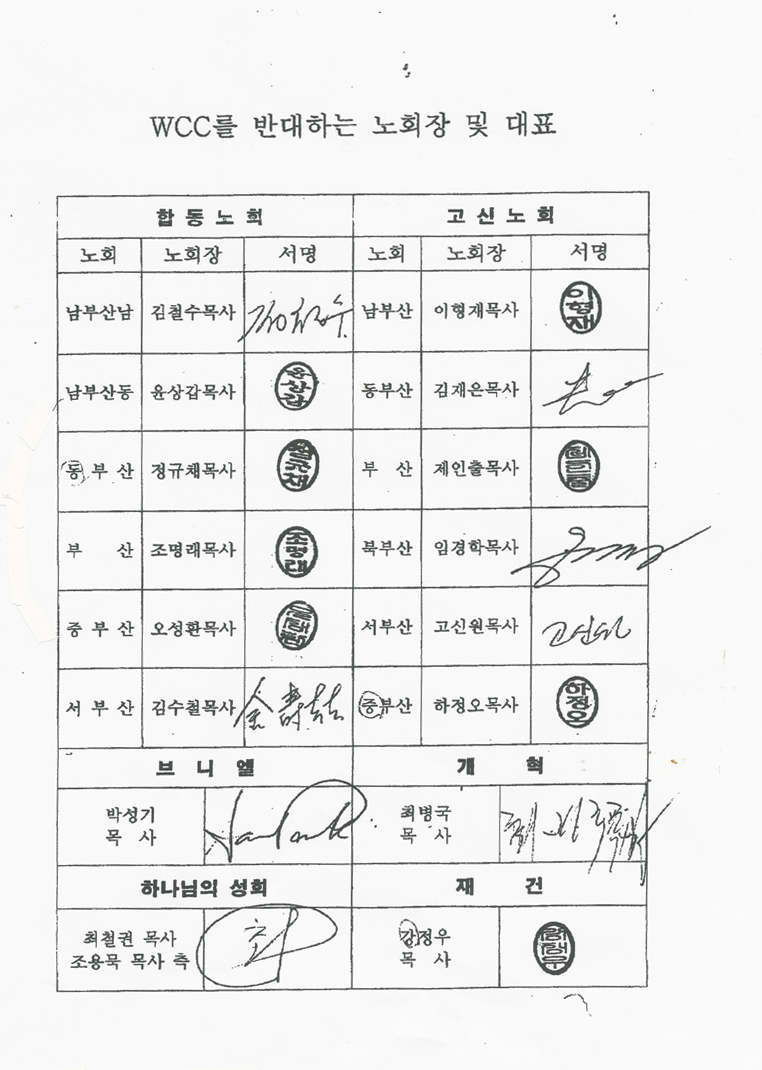 WCC를 반대하는 노회장 및 대표
합동노회 고신노회
노회 노회장 서명 노회 노회장 서명
남부산남 김철수목사 김철수 남부산 이형재목사 이형재
남부산동 윤상갑목사 윤상갑 동부산 김재은목사
동부산 정규채목사 정규채 부 산 제인출목사
부 산 조명래목사 조명래 북부산 임경학목사
중부산 오성환목사 서부산 고신원목사 고신원
서부산 김수철목사 중부산 하정오목사 하정오
브니엘 개 혁
박성기 최병국
목 사 목 사
하나님의 성회 재 건
최철권 목사 강정우
조용목 목사 측 목 사